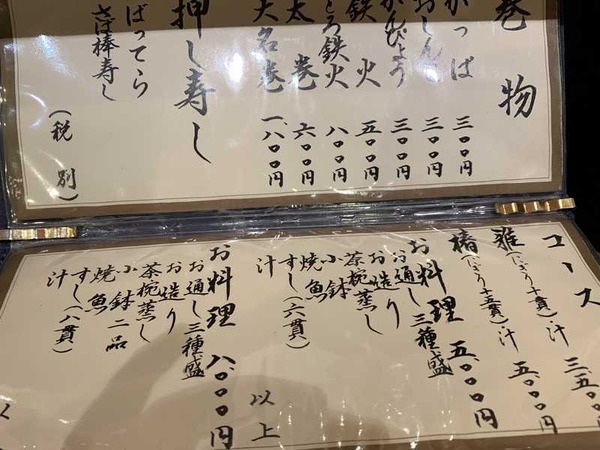 巻物
かっぱ 三〇〇円
おしんこ 三〇〇円
かんぴょう 三〇〇円
鉄火 五〇〇円
とろ鉄火 八〇〇円
太巻 六〇〇円
大名巻 一、八〇〇円
押し寿し
ばってら
さば棒寿し
(税別)
コース
(にぎり十貫)汁 三、五〇〇円
椿(にぎり十五貫)汁 五、〇〇〇円
お料理 五、〇〇〇円
お通し三種盛
お造り
茶椀蒸し
小鉢
焼魚
すし(六貫)
汁
以上
お料理 八、〇〇〇円
お通し三種盛
お造り
茶椀蒸し
小鉢二品
焼魚
すし(八貫)
汁